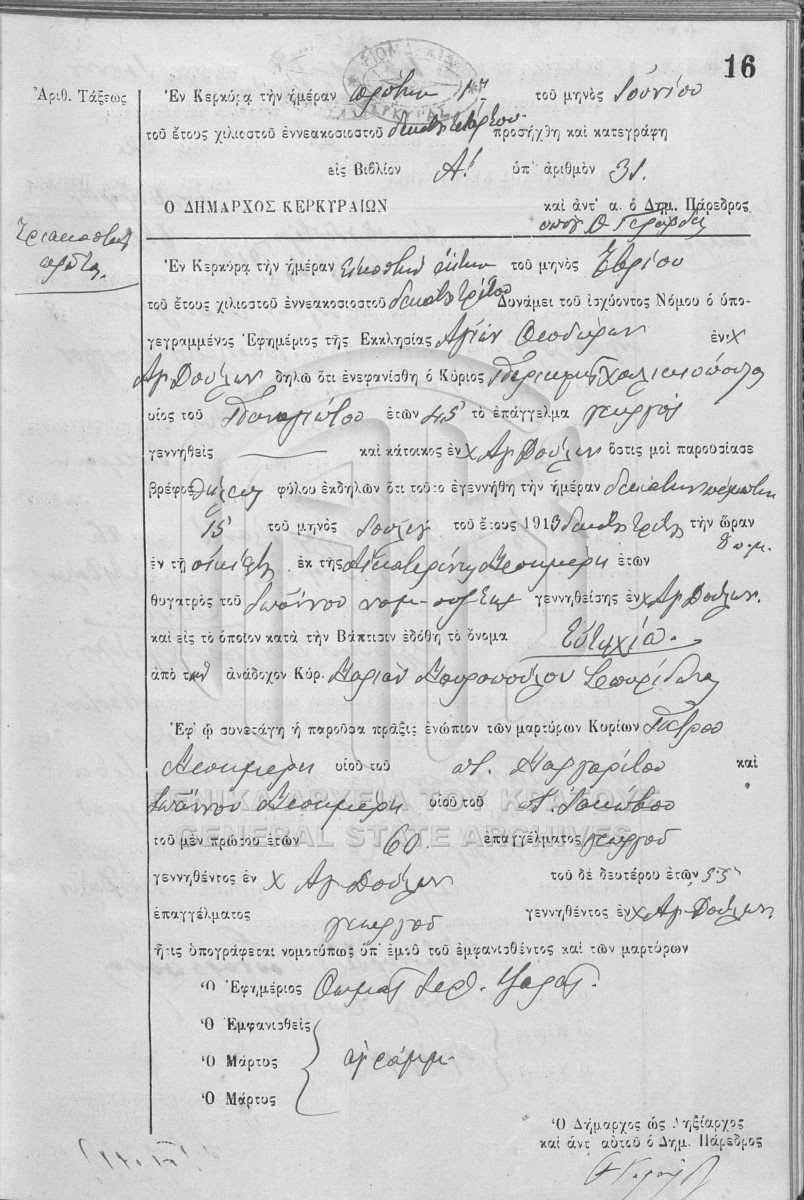 16
Ἀριθ. Τάξεως
Ἐν Κερκύρᾳ τὴν ἡμέραν πρώτην 1ην τοῦ μηνὸς Ἰουνίου
τοῦ ἔτους χιλιοστοῦ ἐννεακοσιοστοῦ δεκάτου τετάρτου προσήχθη καὶ κατεγράφη
εἰς Βιβλίον Α! ὑπ' ἀριθμὸν 31.
Ο ΔΗΜΑΡΧΟΣ ΚΕΡΚΥΡΑΙΩΝ καὶ ἀντ' α. ὁ Δημ. Πάρεδρος
Τριακοστὴ
πρώτη.
Ἐν Κερκύρᾳ τὴν ἡμέραν εἰκοστὴν τοῦ μηνὸς
τοῦ ἔτους χιλιοστοῦ ἐννεακοσιοστοῦ δεκάτου τρίτου Δυνάμει τοῦ ἰσχύοντος Νόμου ὁ ὑπο-
γεγραμμένος Ἐφημέριος τῆς Εκκλησίας Ἁγίων Θεοδώρων ἐν χ
Αγ Δούλων δηλῶ ὅτι ἐνεφανίσθη ὁ Κύριος Χαλικιόπουλος
υἱὸς τοῦ Παναγιώτου ἐτῶν 45 τὸ ἐπάγγελμα γεωργὸς
γεννηθεὶς — καὶ κάτοικος ἐν χ Αγ Δούλων ὅστις μοὶ παρουσίασε
βρέφος θήλεως φύλου ἐκδηλῶν ὅτι τοῦτο ἐγεννήθη τὴν ἡμέραν δεκάτην πέμπτην
15 τοῦ μηνὸς τοῦ ἔτους 1913 δεκάτου τρίτου τὴν ὥραν
8 π.μ.
ἐν τῇ οἰκίᾳ ἐκ τῆς Αἰκατερίνης ἐτῶν
θυγατρὸς τοῦ Ἰωάννου νομ. συζ. γεννηθείσης ἐν χ Αγ Δούλων.
καὶ εἰς τὸ ὁποῖον κατὰ τὴν Βάπτισιν ἐδόθη τὸ ὄνομα Εὐτυχία.
ἀπὸ τὴν ἀνάδοχον Κύρ. Μαρίαν Μαυροπούλου Σπυρίδωνος
Ἐφ' ᾧ συνετάγη ἡ παροῦσα πρᾶξις ἐνώπιον τῶν μαρτύρων Κυρίων Πέτρου
υἱοῦ τοῦ π. Μαργαρίτου καὶ
Ἰωάννου υἱοῦ τοῦ π. Ἰακώβου
ΓΕΝΙΚΑ ΑΡΧΕΙΑ ΤΟΥ ΚΡΑΤΟΥΣ
GENERAL STATE ARCHIVES
τοῦ μὲν πρώτου ἐτῶν 60. ἐπαγγέλματος γεωργοῦ
γεννηθέντος ἐν χ Αγ Δούλων τοῦ δὲ δευτέρου ἐτῶν 55
ἐπαγγέλματος γεωργοῦ γεννηθέντος ἐν χ Αγ. Δούλων
ἥτις ὑπογράφεται νομοτύπως ὑπ' ἐμοῦ τοῦ ἐμφανισθέντος καὶ τῶν μαρτύρων
Ὁ Ἐφημέριος Θωμᾶς Ἱερ.
Ὁ Ἐμφανισθεὶς
Ὁ Μάρτυς ἀγράμμ.
Ὁ Μάρτυς
Ὁ Δήμαρχος ὡς Ληξίαρχος
καὶ ἀντ' αὐτοῦ ὁ Δημ. Πάρεδρος